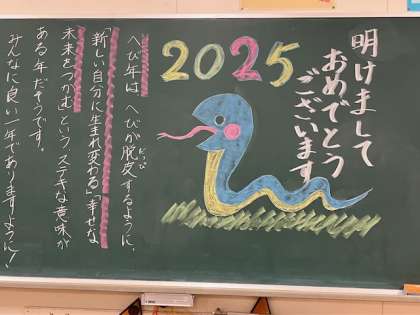 明けまして
おめでとう
ございます
2025
へび年は、へびが脱皮するように、
だっぴ
「新しい自分に生まれ変わる」「幸せな
未来をつかむ」という ステキな意味が
ある年だそうです。
みんなに良い一年でありますように!